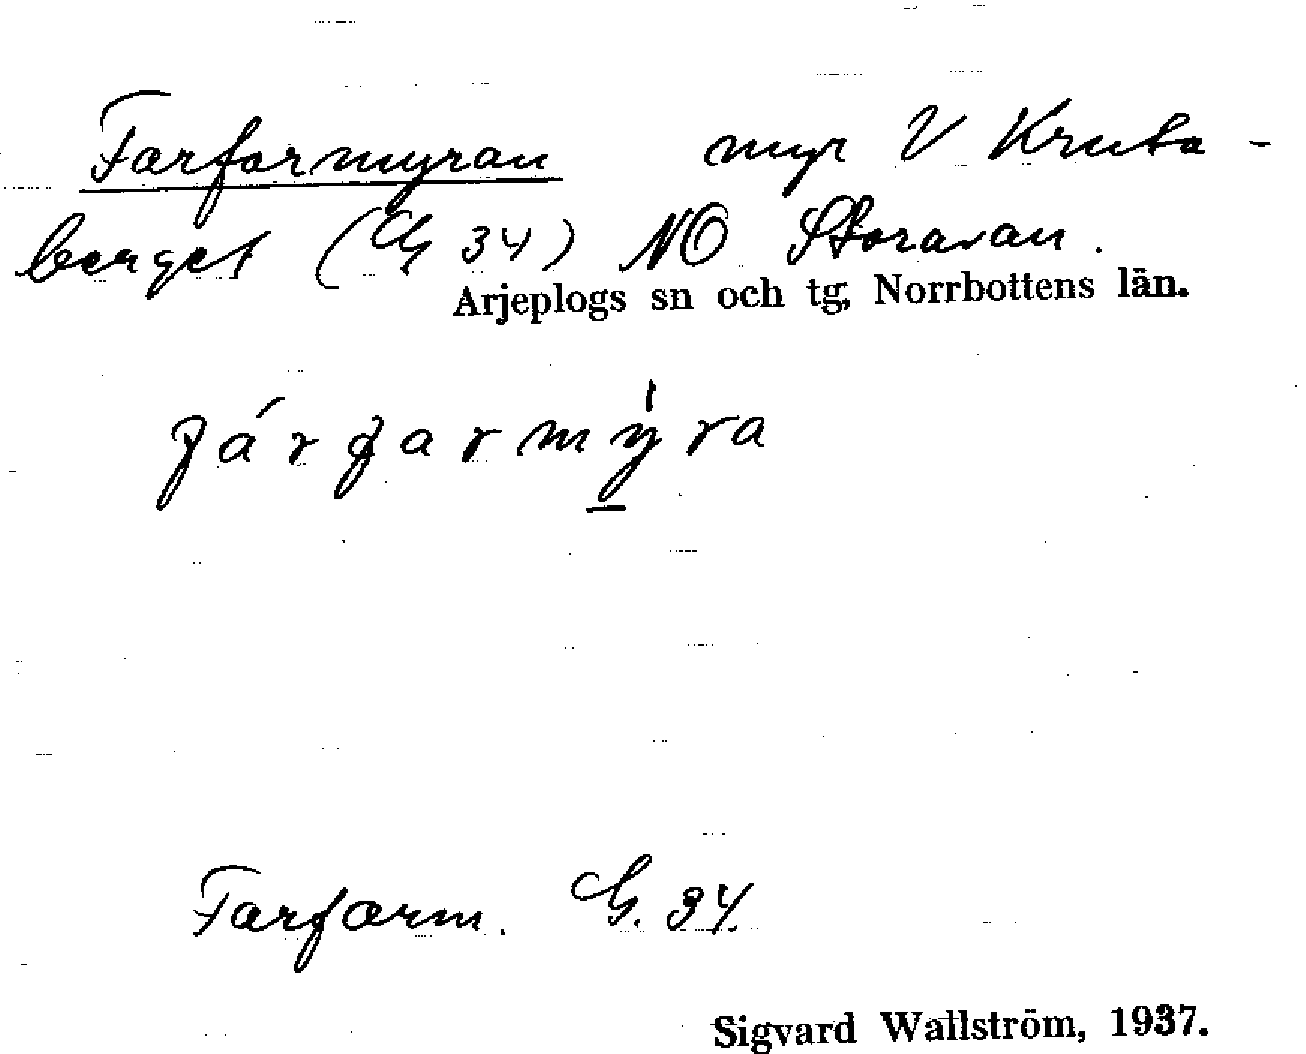 Farfarmyran myr V Kruta-
berget (G 34) NO Storavan.
Arjeplogs sn och tg, Norrbottens län.
fárfarmy̱̍ra
Farfarm. G. 34.
Sigvard Wallström, 1937.